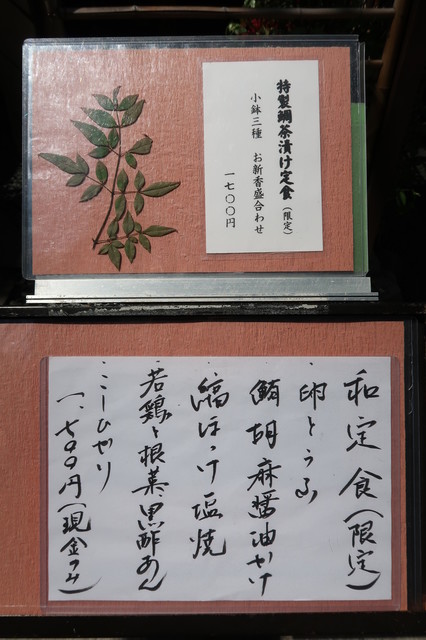 特製鯛茶漬け定食（限定）
小鉢三種　お新香盛合わせ
一七〇〇円
和定食（限定）
・卵とうふ
鮪胡麻醤油かけ
・縞ほっけ塩焼
・若鶏と根菜黒酢あん
・こしひかり
一、七〇〇円（現金のみ）